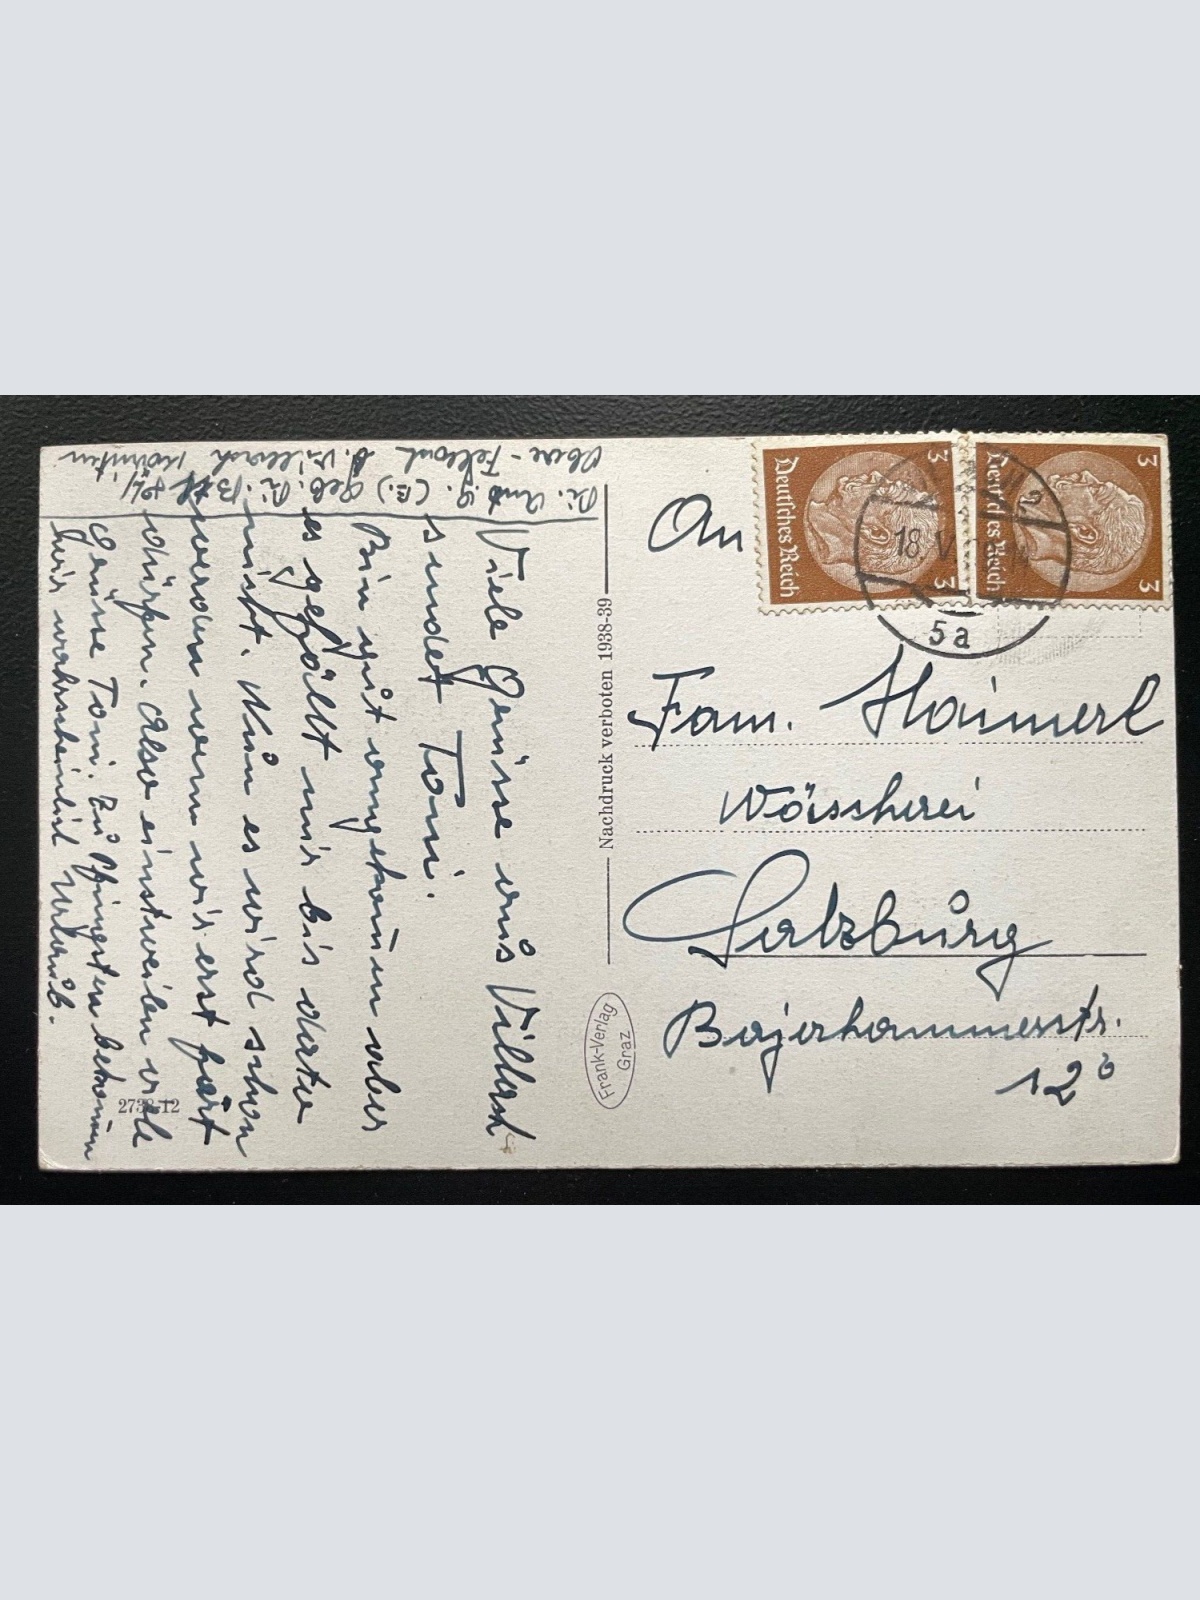 Viele Grüsse aus Villach
sendet Toni.
Bin gut angekommen aber
es gefällt mir bis dato
nicht. Nun es wird schon
werden wenn wir erst fort
dürfen. Also einstweilen viele
Grüsse Toni. Zu Pfingsten bekommen
wir wahrscheinlich Urlaub.
Ober-Fellach b. Villach Kärnten
Nachdruck verboten 1938-39
Frank-Verlag
Graz
2738-12
Deutsches Reich
3
3
Deutsches Reich
3
3
2
18. V.
5a
An
Fam. Haimerl
Wäscherei
Salzburg
Bayerhammerstr.
12